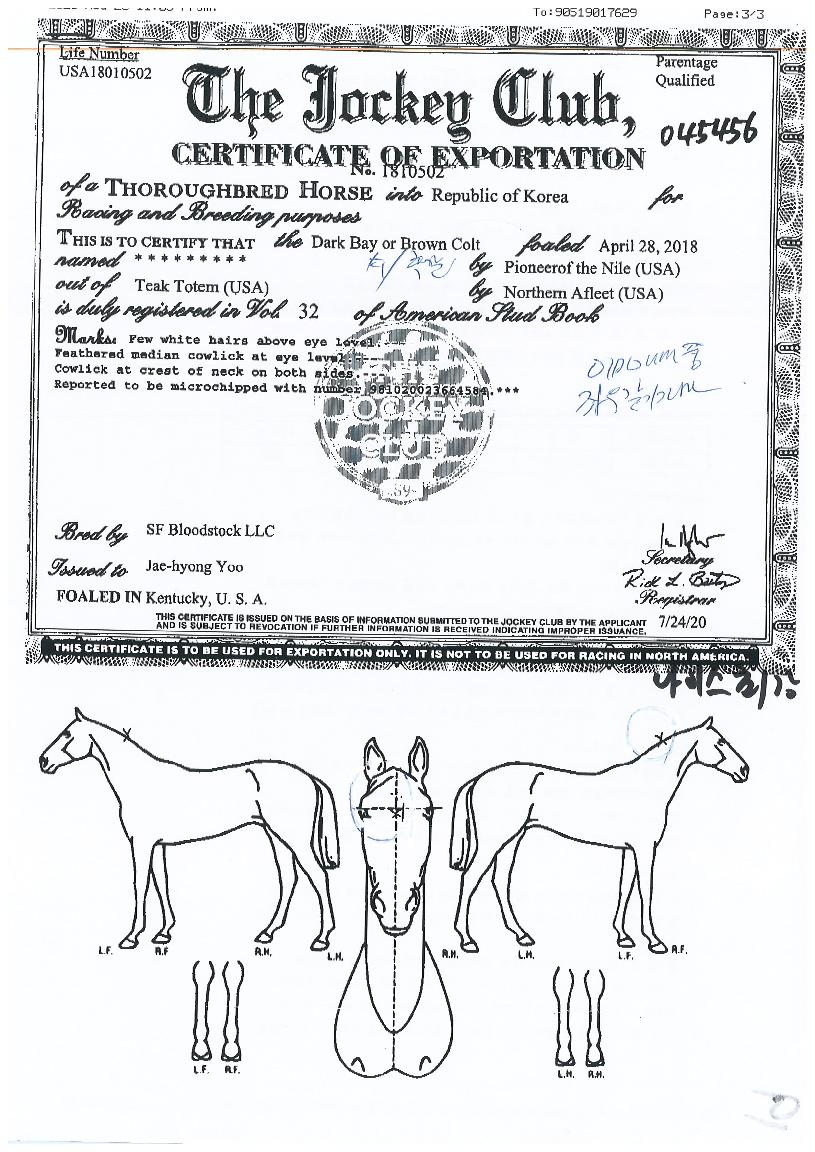 To:90519017629 Page:3/3
Life Number
USA18010502
Parentage
Qualified
The Jockey Club,
045456
CERTIFICATE OF EXPORTATION
No. 1810502
of a THOROUGHBRED HORSE into Republic of Korea for
Racing and Breeding purposes
THIS IS TO CERTIFY THAT the Dark Bay or Brown Colt foaled April 28, 2018
named * * * * * * * * * by Pioneerof the Nile (USA)
out of Teak Totem (USA) by Northern Afleet (USA)
is duly registered in Vol. 32 of American Stud Book
Marks: Few white hairs above eye level.----
Feathered median cowlick at eye level.----
Cowlick at crest of neck on both sides.----
Reported to be microchipped with number 981020023664584.***
THE
JOCKEY
CLUB
Bred by SF Bloodstock LLC
Issued to Jae-hyong Yoo
Secretary
Registrar
FOALED IN Kentucky, U. S. A.
THIS CERTIFICATE IS ISSUED ON THE BASIS OF INFORMATION SUBMITTED TO THE JOCKEY CLUB BY THE APPLICANT
AND IS SUBJECT TO REVOCATION IF FURTHER INFORMATION IS RECEIVED INDICATING IMPROPER ISSUANCE.
7/24/20
THIS CERTIFICATE IS TO BE USED FOR EXPORTATION ONLY. IT IS NOT TO BE USED FOR RACING IN NORTH AMERICA.
L.F. R.F R.H. L.H. R.H. L.H. L.F. R.F.
L.F. R.F. L.H. R.H.